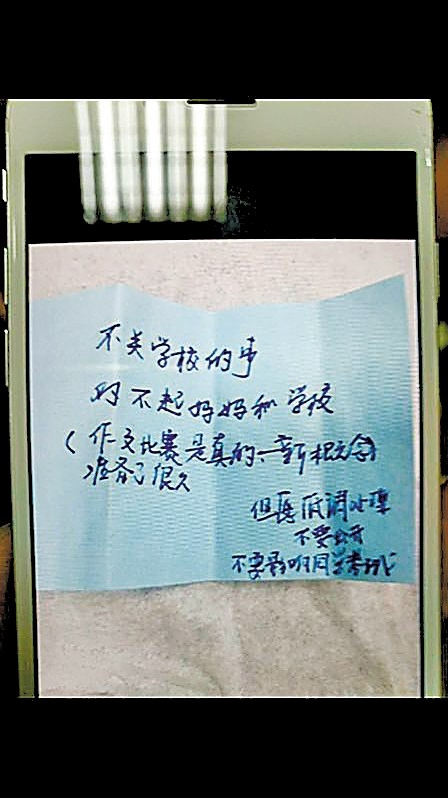 不关学校的事
对不起妈妈和学校
(作文比赛是真的、新概念
准备了很久
但愿低调处理
不要公开
不要影响同学考试